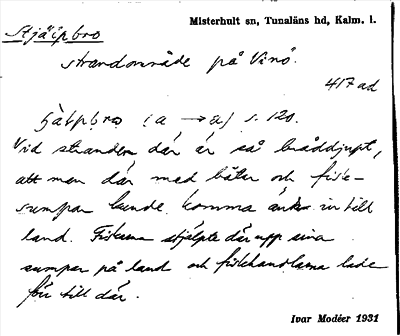 Misterhult sn, Tunaläns hd, Kalm. l.
Stjälpbro
strandområde på Vinö.
417 ad
s. 120.
Vid stranden där är så bråddjupt,
att man där med båten och fisk-
sumpar kunde komma ända in till
land. Fiskarna stjälpte där upp sina
sumpar på land och fiskehandlarna lade
för till där.
Ivar Modéer 1931